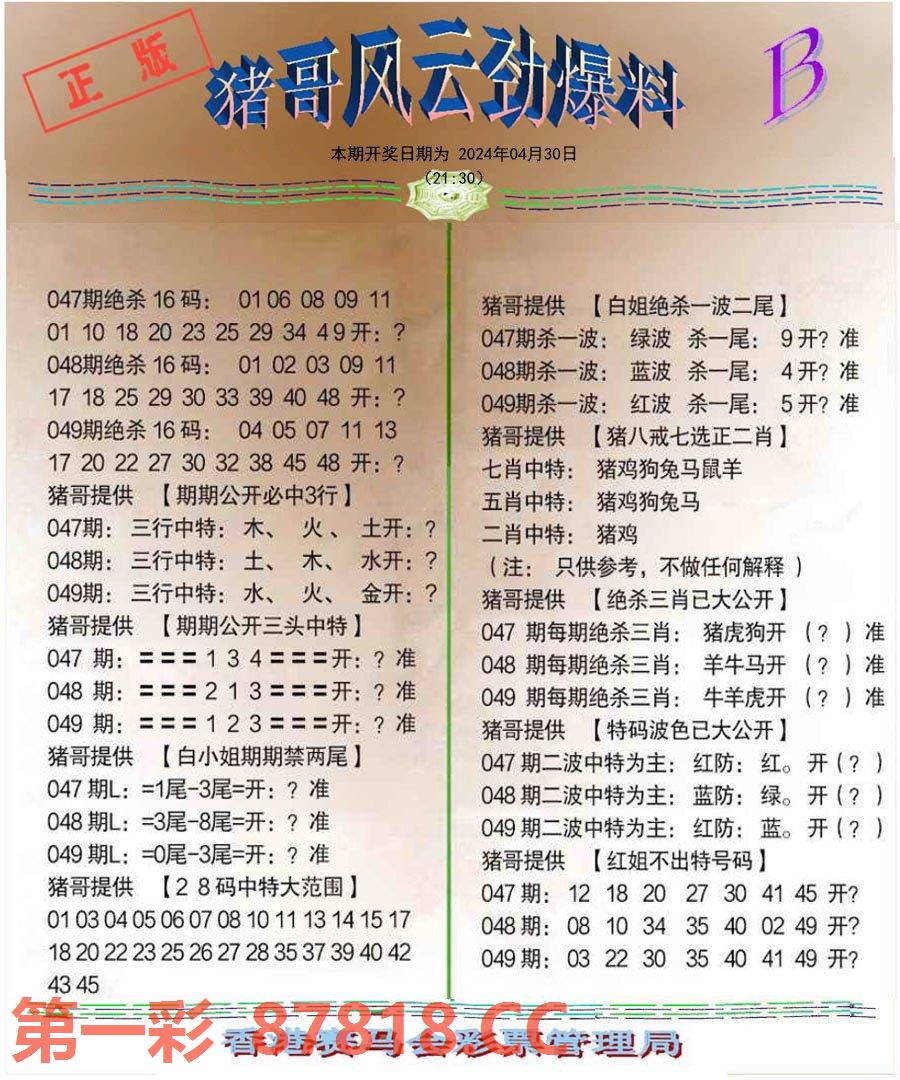 正版
猪哥风云劲爆料
B
本期开奖日期为 2024年04月30日
(21:30)
047期绝杀16码: 01 06 08 09 11
01 10 18 20 23 25 29 34 49开:?
048期绝杀16码: 01 02 03 09 11
17 18 25 29 30 33 39 40 48 开:?
049期绝杀16码: 04 05 07 11 13
17 20 22 27 30 32 38 45 48 开:?
猪哥提供 【期期公开必中3行】
047期: 三行中特: 木、 火、 土开:?
048期: 三行中特: 土、 木、 水开:?
049期: 三行中特: 水、 火、 金开:?
猪哥提供 【期期公开三头中特】
047 期: === 1 3 4 ===开:? 准
048 期: === 2 1 3 ===开:? 准
049 期: === 1 2 3 ===开:? 准
猪哥提供 【白小姐期期禁两尾】
047期L: =1尾-3尾=开:? 准
048期L: =3尾-8尾=开:? 准
049期L: =0尾-3尾=开:? 准
猪哥提供 【28码中特大范围】
01 03 04 05 06 07 08 10 11 13 14 15 17
18 20 22 23 25 26 27 28 35 37 39 40 42
43 45
猪哥提供 【白姐绝杀一波二尾】
047期杀一波: 绿波 杀一尾: 9开? 准
048期杀一波: 蓝波 杀一尾: 4开? 准
049期杀一波: 红波 杀一尾: 5开? 准
猪哥提供 【猪八戒七选正二肖】
七肖中特: 猪鸡狗兔马鼠羊
五肖中特: 猪鸡狗兔马
二肖中特: 猪鸡
(注: 只供参考,不做任何解释 )
猪哥提供 【绝杀三肖已大公开】
047 期每期绝杀三肖: 猪虎狗开 (? )准
048 期每期绝杀三肖: 羊牛马开 (? )准
049 期每期绝杀三肖: 牛羊虎开 (? )准
猪哥提供 【特码波色已大公开】
047期二波中特为主: 红防: 红。 开(? )
048期二波中特为主: 蓝防: 绿。 开(? )
049期二波中特为主: 红防: 蓝。 开(? )
猪哥提供 【红姐不出特号码】
047期: 12 18 20 27 30 41 45 开?
048期: 08 10 34 35 40 02 49 开?
049期: 03 22 30 35 40 41 49 开?
第一彩 87818.CC
香港赛马会彩票管理局